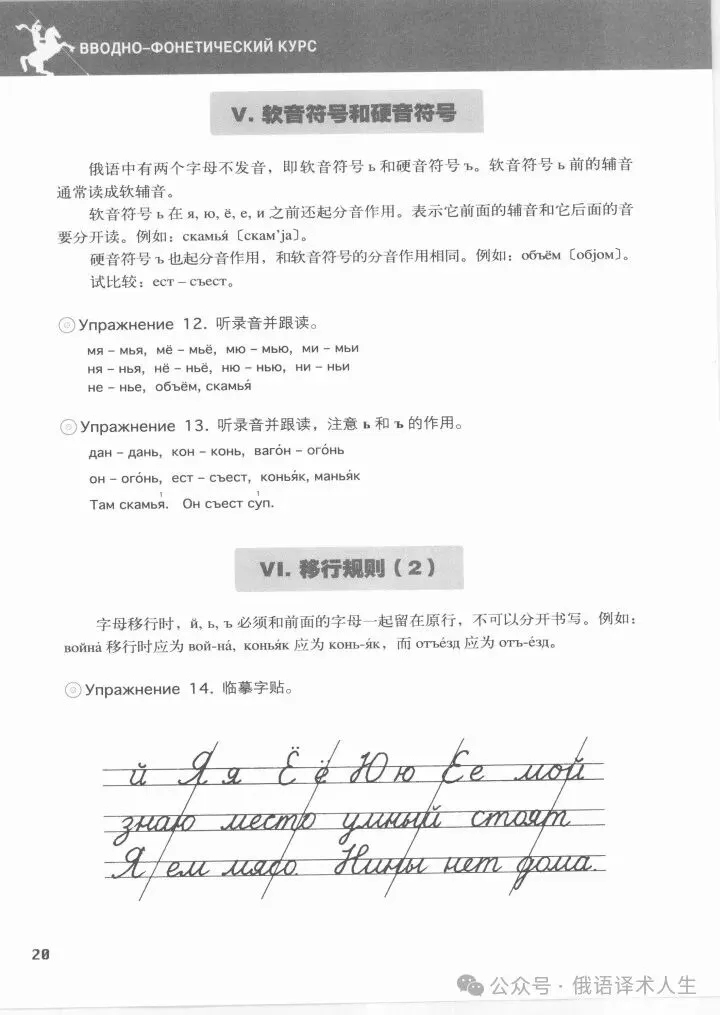 ВВОДНО–ФОНЕТИЧЕСКИЙ КУРС
V. 软音符号和硬音符号
俄语中有两个字母不发音，即软音符号 ь 和硬音符号 ъ。软音符号 ь 前的辅音
通常读成软辅音。
软音符号 ь 在 я, ю, ё, е, и 之前还起分音作用。表示它前面的辅音和它后面的音
要分开读。例如：скамья́〔скам’jа〕。
硬音符号 ъ 也起分音作用，和软音符号的分音作用相同。例如：объём〔обjом〕。
试比较：ест – съест。
Упражнение 12. 听录音并跟读。
мя – мья, мё – мьё, мю – мью, ми – мьи
ня – нья, нё – ньё, ню – нью, ни – ньи
не – нье, объём, скамья́
Упражнение 13. 听录音并跟读，注意 ь 和 ъ 的作用。
дан – дань, кон – конь, ваго́н – ого́нь
он – ого́нь, ест – съест, конья́к, манья́к
1 1
Там скамья́. Он съест суп.
VI. 移行规则（2）
字母移行时，й, ь, ъ 必须和前面的字母一起留在原行，不可以分开书写。例如：
война́ 移行时应为 вой-на́, конья́к 应为 конь-я́к，而 отъе́зд 应为 отъ-е́зд。
Упражнение 14. 临摹字贴。
й Я я Ё ё Ю ю Е е мой
знаю место умный стоят
Я ем мясо. Нины нет дома.
20
公众号 · 俄语译术人生